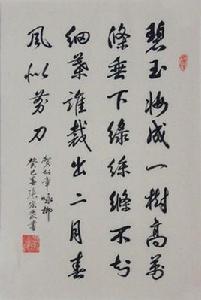 碧玉妝成一樹高萬
條垂下綠絲絛不知
細葉誰裁出二月春
風似剪刀
賀知章 咏柳
癸巳春張書